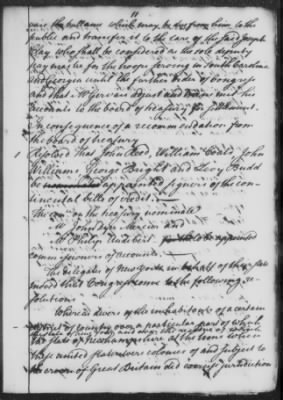 11
pare the ballance which may be due from him to the
public and transfer it to the care of the sd Joseph
Clay who shall be considered as the sole deputy
pay master for the troops serving in South Carolina
and Georgia until the further order of Congress
and that Mr Gervais adjust and transmit his
accounts to the board of treasury for settlement.
In consequence of a recommendation from
the board of treasury
Resolved that John Reed, William Coats, John
Williams, George Bright and Levy Budd
be nominated appointed signers of the con-
tinental bills of credit.
The com on the treasury nominate
Mr John Dyer Mercier and
Mr Philip Audibert to be appointed
commissioners of accounts.
The delegates of New York in behalf of their state
moved that Congress come to the following re-
solutions
Whereas divers of the inhabitants of a certain
district of country over a particular part of which
the state of New York and over the residue of which
the state of Newhampshire at the time when
these united states were colonies of and subject to
the crown of Great Britain did exercise jurisdiction